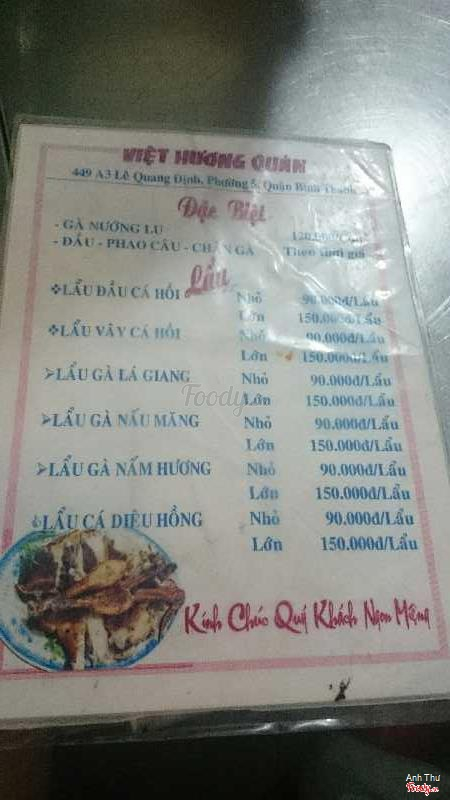 VIỆT HƯƠNG QUÁN
449 A3 Lê Quang Định, Phường 5, Quận Bình Thạnh
Đặc Biệt
- GÀ NƯỚNG LU 120.000/Con
- ĐẦU - PHAO CÂU - CHÂN GÀ Theo thời giá
Lẩu
❖LẨU ĐẦU CÁ HỒI Nhỏ 90.000đ/Lẩu
Lớn 150.000đ/Lẩu
❖LẨU VÂY CÁ HỒI Nhỏ 90.000đ/Lẩu
Lớn 150.000đ/Lẩu
➢LẨU GÀ LÁ GIANG Nhỏ 90.000đ/Lẩu
Lớn 150.000đ/Lẩu
Foody
➢LẨU GÀ NẤU MĂNG Nhỏ 90.000đ/Lẩu
Lớn 150.000đ/Lẩu
➢LẨU GÀ NẤM HƯƠNG Nhỏ 90.000đ/Lẩu
Lớn 150.000đ/Lẩu
LẨU CÁ DIÊU HỒNG Nhỏ 90.000đ/Lẩu
Lớn 150.000đ/Lẩu
Kính Chúc Quý Khách Ngon Miệng
Anh Thư
Foody.vn